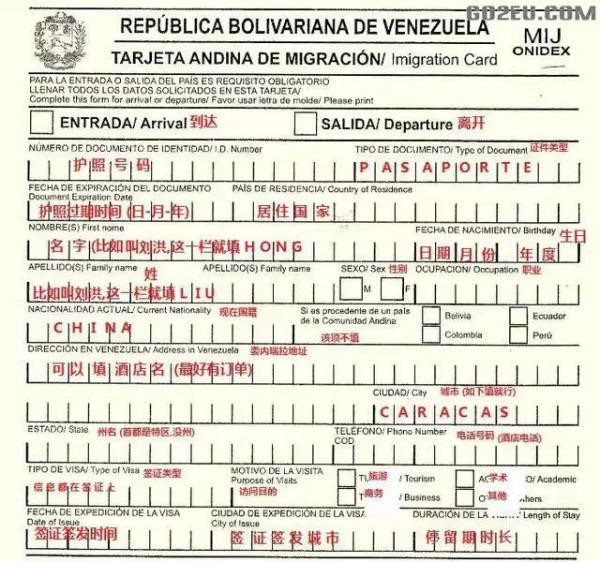 GO2EU.COM
REPÚBLICA BOLIVARIANA DE VENEZUELA
MIJ
ONIDEX
TARJETA ANDINA DE MIGRACIÓN/ Imigration Card
PARA LA ENTRADA O SALIDA DEL PAÍS ES REQUISITO OBLIGATORIO
LLENAR TODOS LOS DATOS SOLICITADOS EN ESTA TARJETA/
Complete this form for arrival or departure/ Favor usar letra de molde/ Please print
ENTRADA/ Arrival 到达 SALIDA/ Departure 离开
NÚMERO DE DOCUMENTO DE IDENTIDAD/ I.D. Number TIPO DE DOCUMENTO/ Type of Document 证件类型
护照号码 PASAPORTE
FECHA DE EXPIRACIÓN DEL DOCUMENTO PAÍS DE RESIDENCIA/ Country of Residence
Document Expiration Date
护照过期时间 (日-月-年) 居住国家
NOMBRE(S) First name FECHA DE NACIMIENTO/ Birthday 生日
名字(比如叫刘洪,这一栏就填HONG 日期月份 年度
APELLIDO(S) Family name 姓 APELLIDO(S) Family name SEXO/ Sex 性别 OCUPACION/ Occupation 职业
比如叫刘洪,这一栏就填LIU M F
NACIONALIDAD ACTUAL/ Current Nationality 现在国籍 Si es procedente de un país Bolivia Ecuador
de la Comunidad Andina
CHINA 该项不填 Colombia Perú
DIRECCIÓN EN VENEZUELA/ Address in Venezuela 委内瑞拉地址
可以填酒店名(最好有订单)
CIUDAD/ City 城市 (如下填就行)
CARACAS
ESTADO/ State 州名 (首都是特区,没州) TELÉFONO/ Phone Number 电话号码 (酒店电话)
COD
TIPO DE VISA/ Type of Visa 签证类型 MOTIVO DE LA VISITA T 旅游 / Tourism AC 学术 O/ Academic
Purpose of Visits
信息都在签证上 访问目的 T 商务 / Business O 其他 hers
FECHA DE EXPEDICIÓN DE LA VISA CIUDAD DE EXPEDICIÓN DE LA VISA/ DURACIÓN DE LA VISITA/ Length of Stay
Date of Issue City of Issue
签证签发时间 签证签发城市 停留期时长